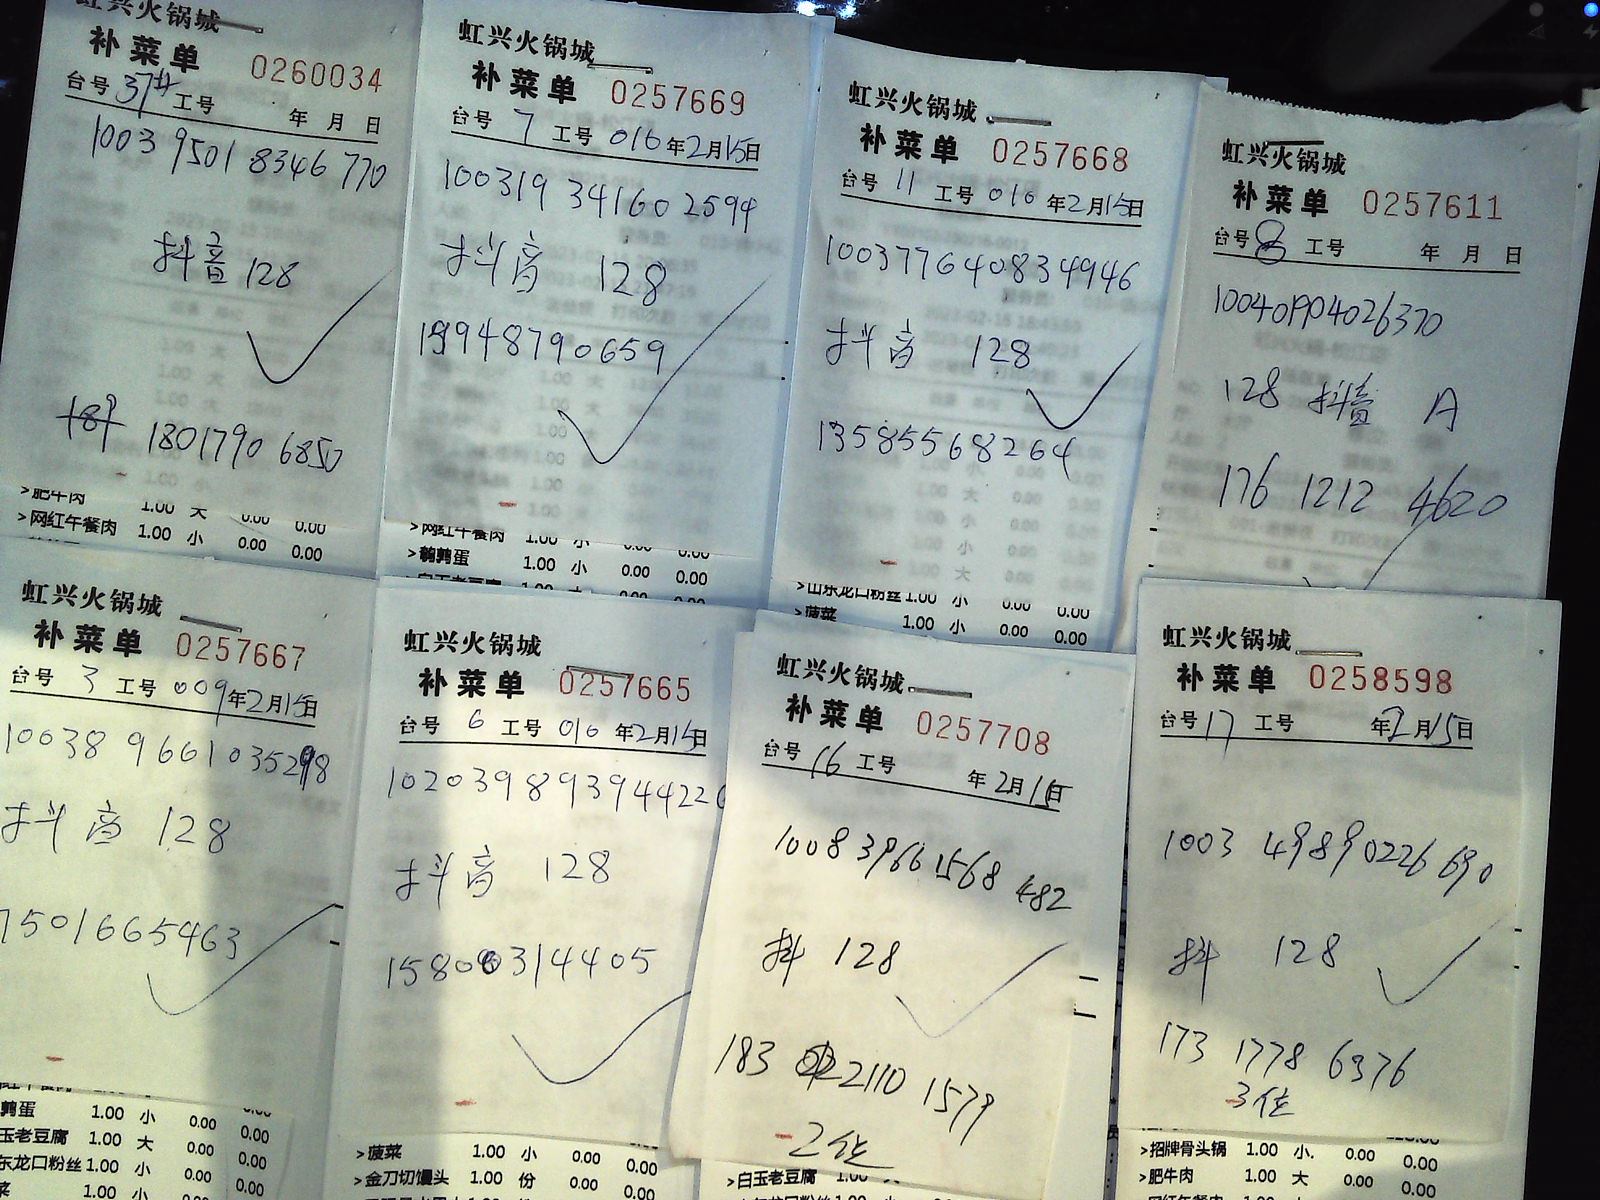 虹兴火锅城
补菜单 0260034
台号 37# 工号 年 月 日
1003 9501 8346 770
抖音 128
1801790 6850
>肥牛肉 1.00 大 0.00 0.00
>网红午餐肉 1.00 小 0.00 0.00
虹兴火锅城
补菜单 0257669
台号 7 工号 016 年2月15日
100319 341602594
抖音 128
19948790659
>网红午餐肉 1.00 小 0.00 0.00
>鹌鹑蛋 1.00 小 0.00 0.00
>白玉老豆腐
虹兴火锅城
补菜单 0257668
台号 11 工号 016 年2月15日
100377640834946
抖音 128
13585568264
>山东龙口粉丝 1.00 小 0.00 0.00
>菠菜 1.00 小 0.00 0.00
虹兴火锅城
补菜单 0257611
台号 8 工号 年 月 日
100409904026370
128 抖音 A
176 1212 4620
虹兴火锅城
补菜单 0257667
台号 3 工号 009 年2月15日
10038 9661035298
抖音 128
7501665463
鹑蛋 1.00 小 0.00 0.00
玉老豆腐 1.00 大 0.00 0.00
东龙口粉丝 1.00 小 0.00 0.00
菜 1.00 小 0.00 0.00
虹兴火锅城
补菜单 0257665
台号 6 工号 016 年2月15日
102039893944226
抖音 128
15800314405
>菠菜 1.00 小 0.00 0.00
>金刀切馒头 1.00 份 0.00 0.00
虹兴火锅城
补菜单 0257708
台号 16 工号 年2月15日
100839661568 482
抖 128
183 2110 1579
2位
>白玉老豆腐 1.00 大 0.00
虹兴火锅城
补菜单 0258598
台号 17 工号 年2月15日
1003 49890226 690
抖 128
173 1778 6976
3位
>招牌骨头锅 1.00 小. 0.00 0.00
>肥牛肉 1.00 大 0.00 0.00